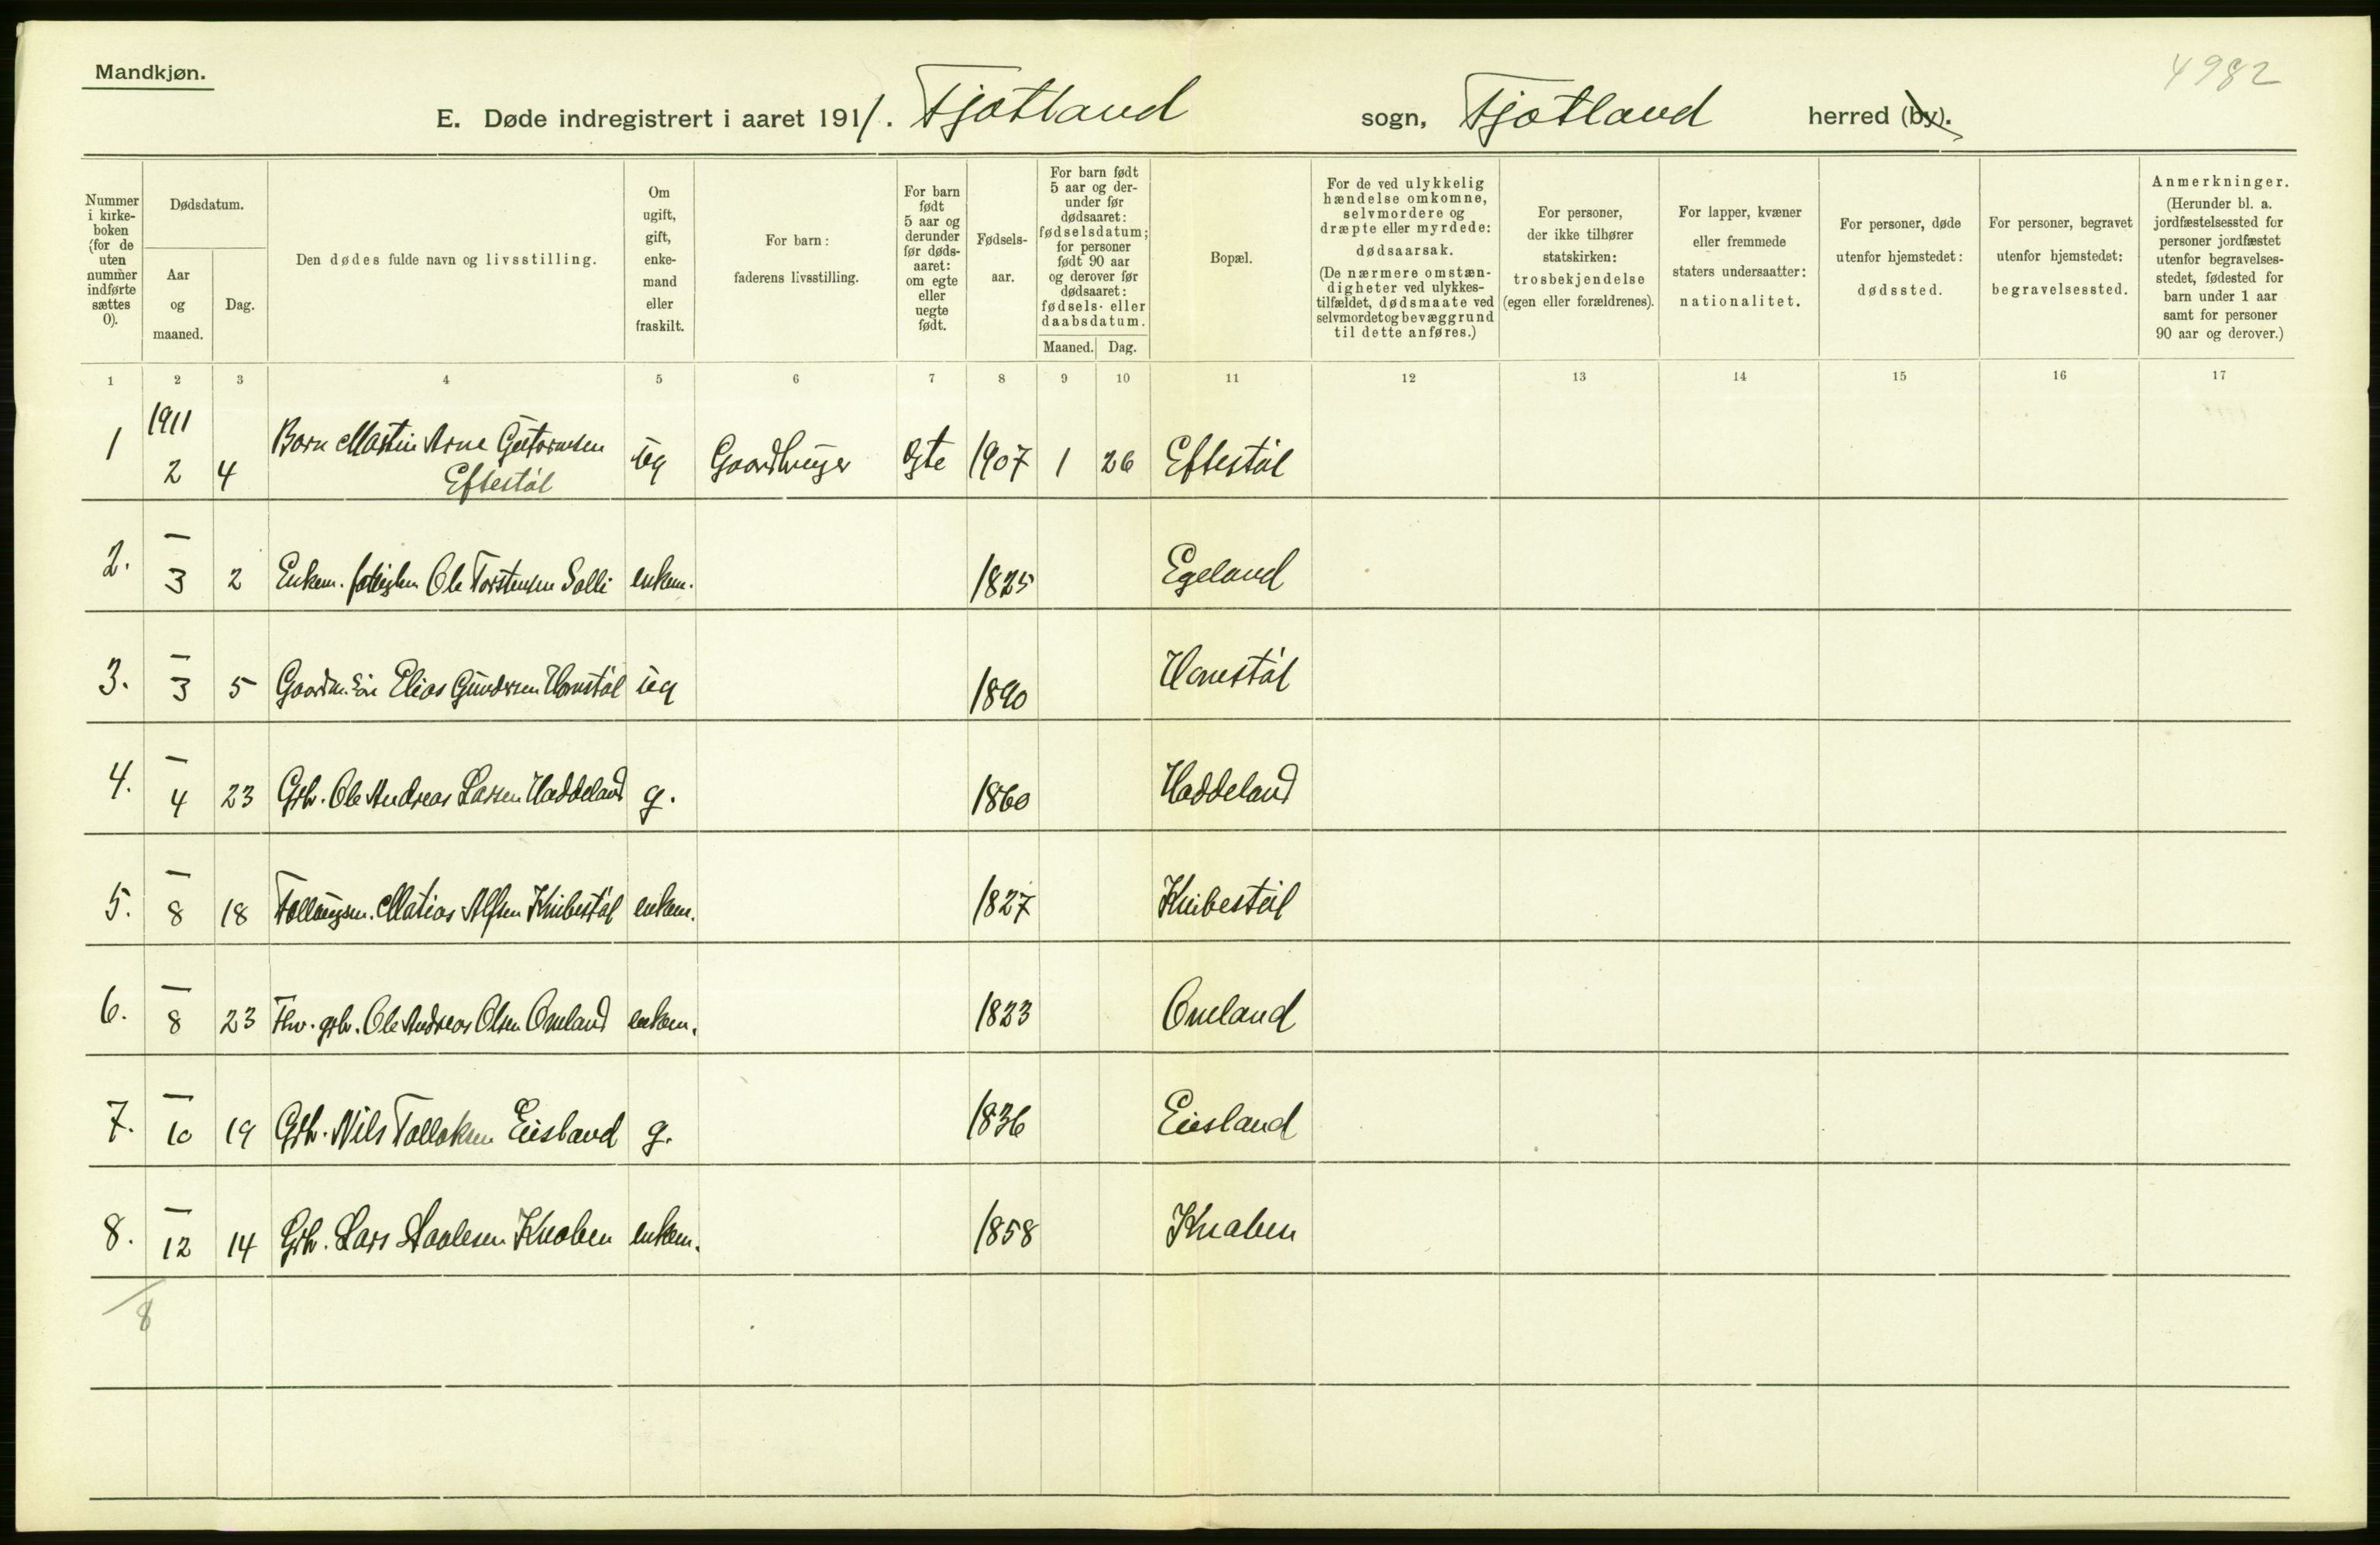 Mandkjøn.
4982
E. Døde indregistrert i aaret 1911. Fjotland sogn, Fjotland herred (by).
Nummer i kirke-boken (for de uten nummer indførte sættes 0).
Dødsdatum.
Aar og maaned.
Dag.
Den dødes fulde navn og livsstilling.
Om ugift, gift, enke-mand eller fraskilt.
For barn: faderens livsstilling.
For barn født 5 aar og derunder før døds-aaret: om egte eller uegte født.
Fødsels-aar.
For barn født 5 aar og der-under før dødsaaret: fødselsdatum; for personer født 90 aar og derover før dødsaaret: fødsels- eller daabsdatum.
Maaned. Dag.
Bopæl.
For de ved ulykkelig hændelse omkomne, selvmordere og dræpte eller myrdede: dødsaarsak. (De nærmere omstæn-digheter ved ulykkes-tilfældet, dødsmaate ved selvmordet og bevæggrund til dette anføres.)
For personer, der ikke tilhører statskirken: trosbekjendelse (egen eller forældrenes).
For lapper, kvæner eller fremmede staters undersaatter: nationalitet.
For personer, døde utenfor hjemstedet: dødssted.
For personer, begravet utenfor hjemstedet: begravelsessted.
Anmerkninger. (Herunder bl. a. jordfæstelsessted for personer jordfæstet utenfor begravelses-stedet, fødested for barn under 1 aar samt for personer 90 aar og derover.)
1 2 3 4 5 6 7 8 9 10 11 12 13 14 15 16 17
1911
1 2 4 Barn Martin Arne Guttormsen Eftestøl ug Gaardbruger egte 1907 1 26 Eftestøl
2. — 3 2 Enkem. Ole Torstensen Solli enkem. 1825 Egeland
3. — 3 5 Gaardm. Søn Elias Gundersen Homstøl ug 1890 Homstøl
4. — 4 23 Grb. Ole Andreas Larsen Haddeland g. 1860 Haddeland
5. — 8 18 Matias Alfsen Knibestøl enkem. 1827 Knibestøl
6. — 8 23 Fhv. grb. Ole Andreas Olsen Omland enkem. 1823 Omland
7. — 10 19 Grb. Nils Tallaksen Eiesland g. 1836 Eiesland
8. — 12 14 Grb. Lars Aaalesen Knaben enkem. 1858 Knaben
8